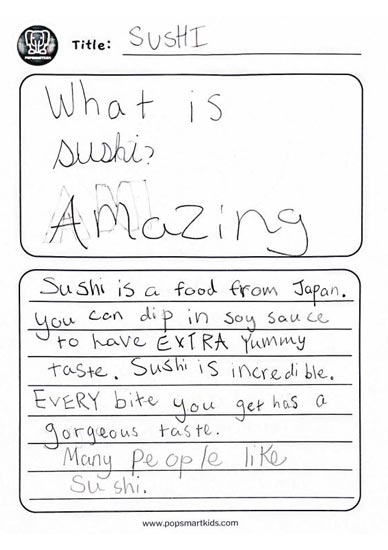 POPSMARTKIDS
Title: SUSHI
What is
sushi?
Amazing
Sushi is a food from Japan.
you can dip in soy sauce
to have EXTRA Yummy
taste. Sushi is incredible.
EVERY bite you get has a
gorgeous taste.
Many people like
Sushi.
www.popsmartkids.com